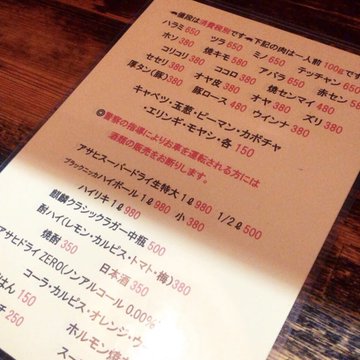 ☁値段は消費税別です☁下記の肉は一人前100gです
ハラミ650 ツラ650 ミノ650 テッチャン650
ホソ380 焼キモ580 アバラ650 赤セン
コリコリ380 ココロ380 焼センマイ650
セセリ380 オヤ皮380 オヤ380 ズリ380
厚タン(豚)380 豚ロース480 ウインナ380
キャベツ・玉葱・ピーマン・カボチャ
・エリンギ・モヤシ・各150
◎警察の指導によりお車を運転される方には
酒類の販売をお断りします。
アサヒスーパードライ生特大1ℓ980 1/2ℓ500
ブラックニッカハイボール1ℓ980 小380
ハイリキ1ℓ980
麒麟クラシックラガー中瓶500
酎ハイ(レモン・カルピス・トマト・梅)380
焼酎350 日本酒350
アサヒドライZERO(ノンアルコール0.00%)
コーラ・カルピス・オレンジ・ウ
ごはん150 ホルモン焼
チ250 スー